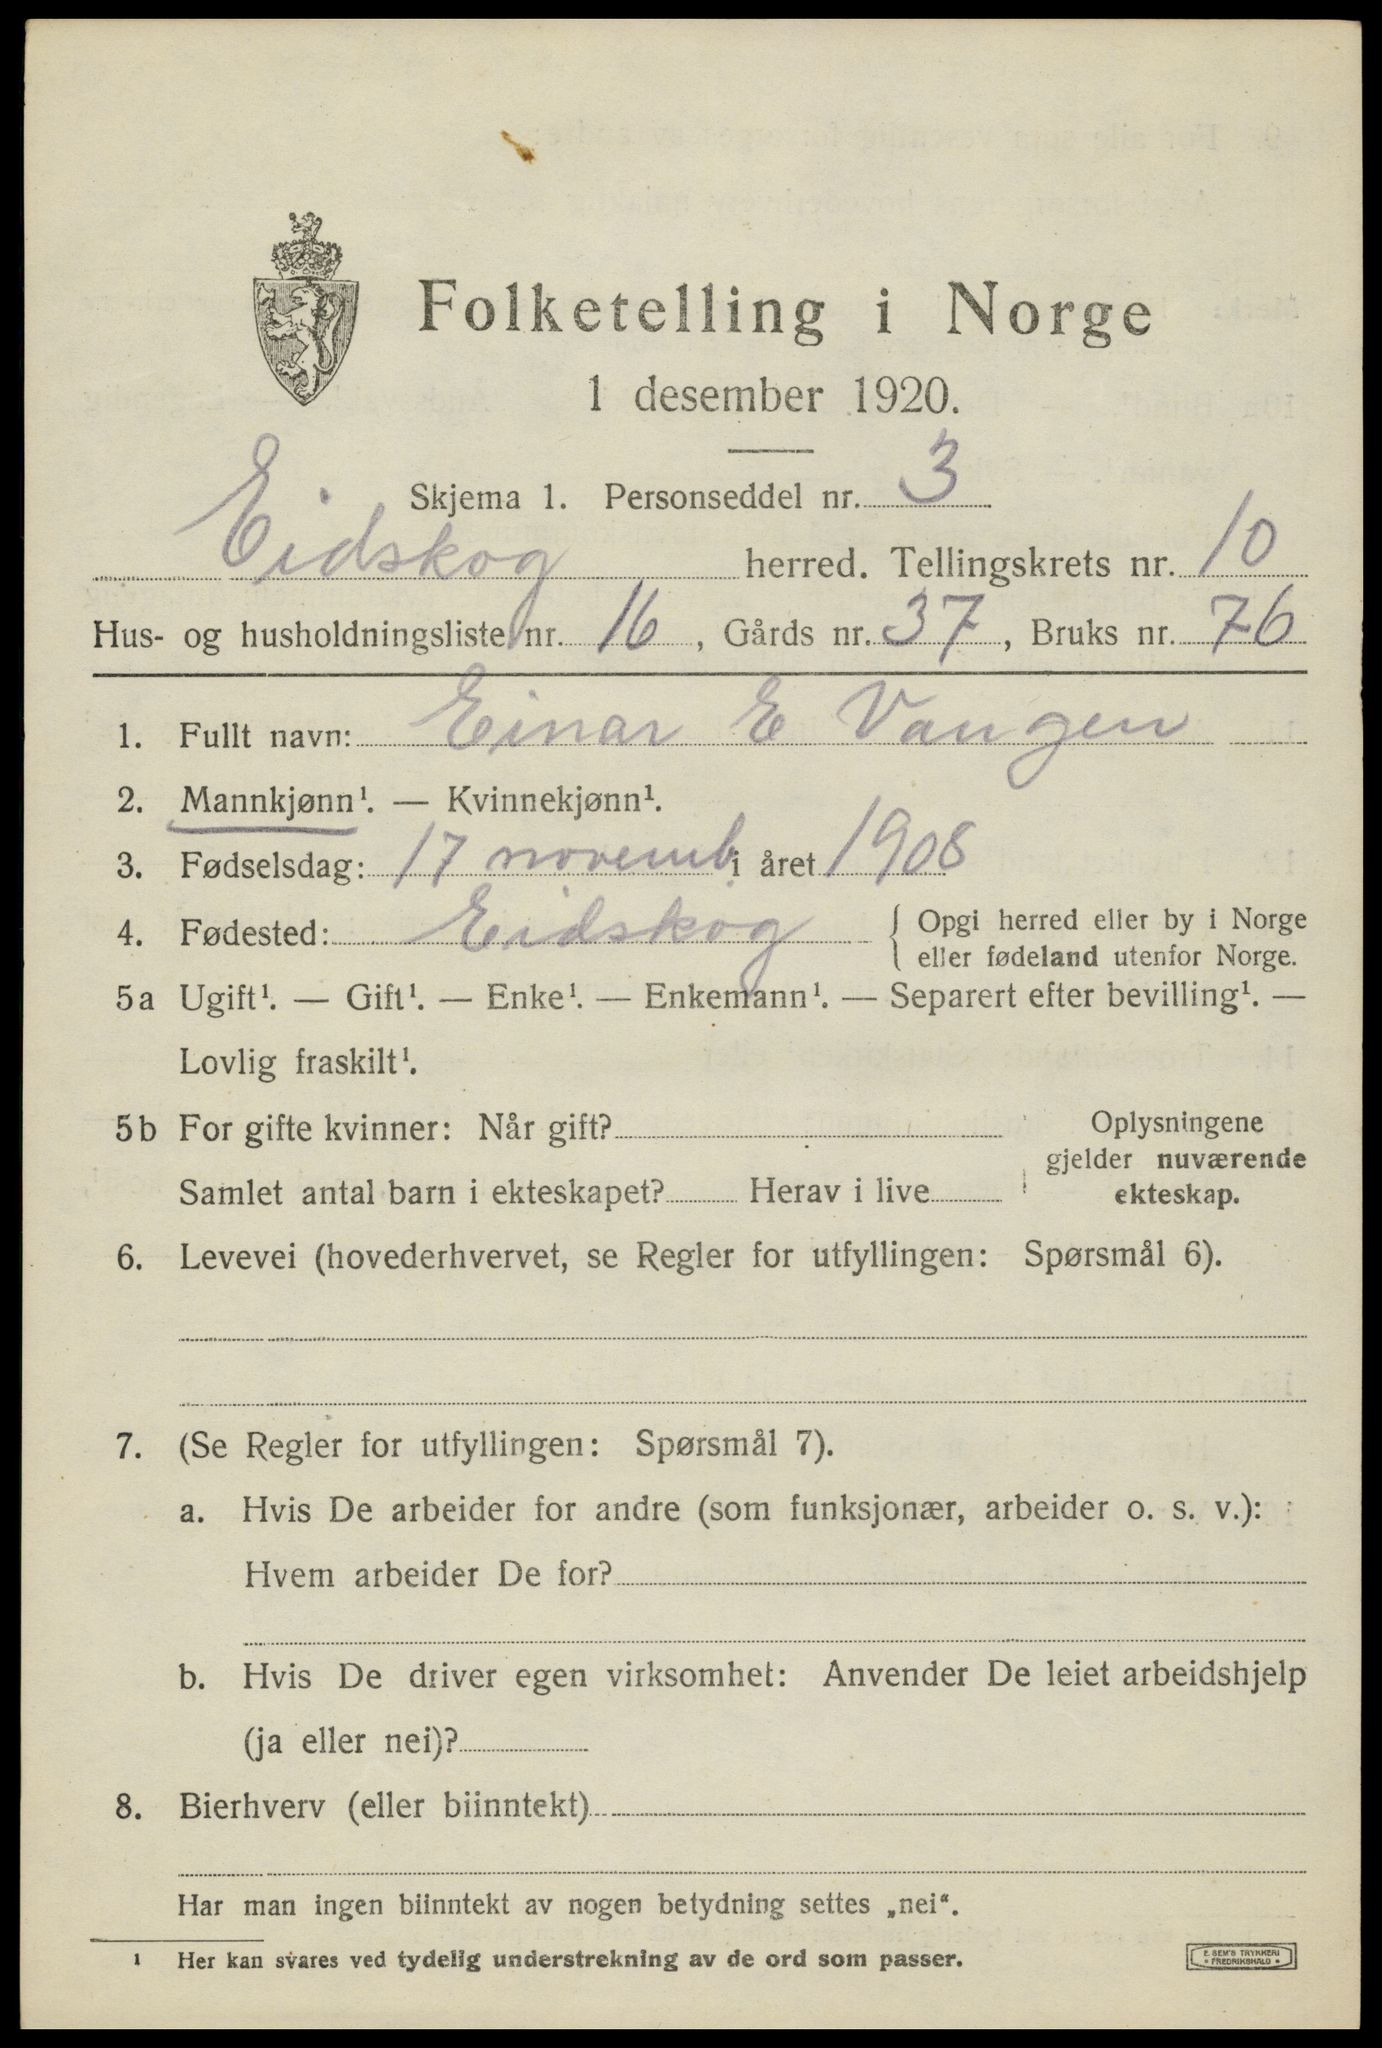 Folketelling i Norge
1 desember 1920.
Skjema 1. Personseddel nr. 3
Eidskog herred. Tellingskrets nr. 10
Hus- og husholdningsliste nr. 16, Gårds nr. 37, Bruks nr. 76
1. Fullt navn: Einar E Vangen
2. Mannkjønn¹. — Kvinnekjønn¹.
3. Fødselsdag: 17 novemb. i året 1908
4. Fødested: Eidskog { Opgi herred eller by i Norge
eller fødeland utenfor Norge.
5a Ugift¹. — Gift¹. — Enke¹. — Enkemann¹. — Separert efter bevilling¹. —
Lovlig fraskilt¹.
5b For gifte kvinner: Når gift? Oplysningene
gjelder nuværende
Samlet antal barn i ekteskapet? Herav i live ekteskap.
6. Levevei (hovederhvervet, se Regler for utfyllingen: Spørsmål 6).
7. (Se Regler for utfyllingen: Spørsmål 7).
a. Hvis De arbeider for andre (som funksjonær, arbeider o. s. v.):
Hvem arbeider De for?
b. Hvis De driver egen virksomhet: Anvender De leiet arbeidshjelp
(ja eller nei)?
8. Bierhverv (eller biinntekt)
Har man ingen biinntekt av nogen betydning settes „nei“.
¹ Her kan svares ved tydelig understrekning av de ord som passer.
E. SEM'S TRYKKERI
• FREDRIKSHALD •